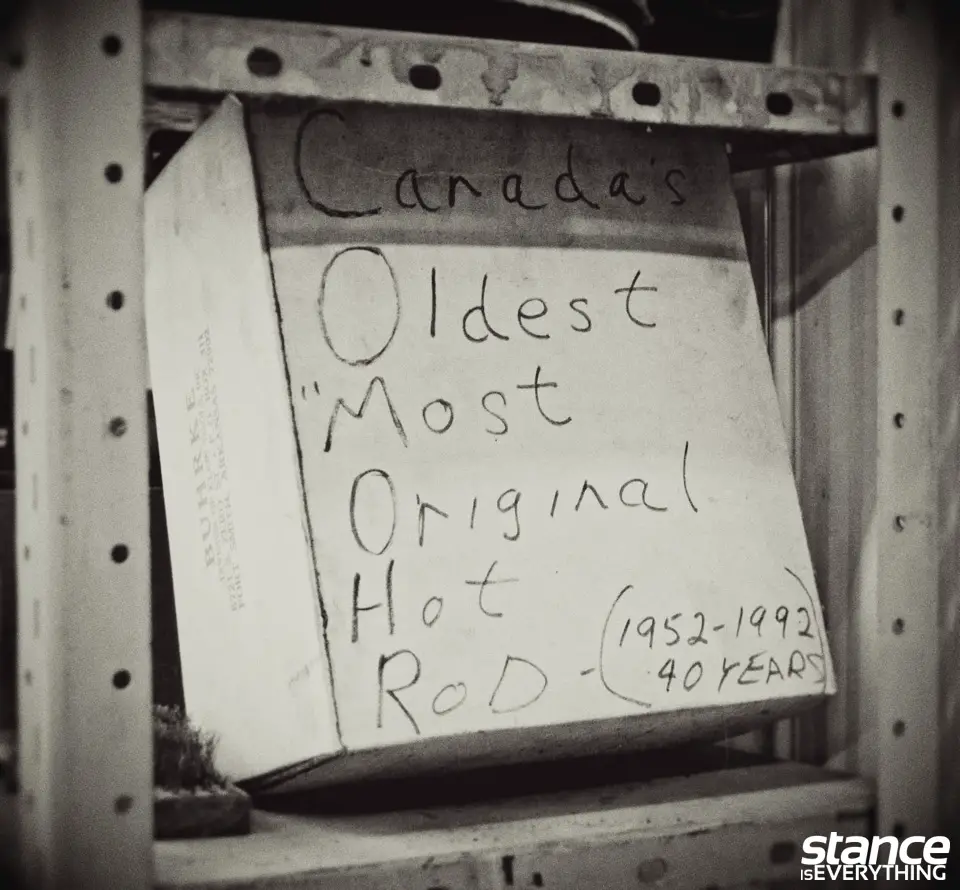 Canada's
Oldest
"Most
Original
Hot
RoD - (1952-1992
40 YEARS)
BUHRKE
stance
isEVERYTHING